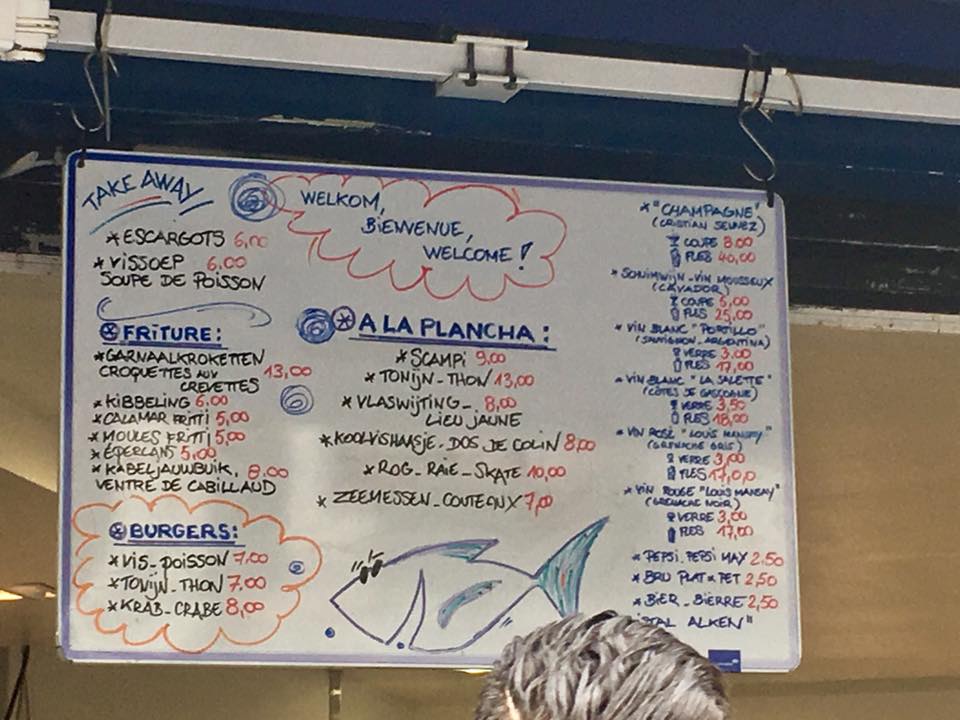 TAKE AWAY
* ESCARGOTS 6,00
* VISSOEP 6.00
SOUPE DE POISSON
WELKOM,
BIENVENUE,
WELCOME!
FRITURE:
* GARNAALKROKETTEN
CROQUETTES AUX 13,00
CREVETTES
* KIBBELING 6.00
* CALAMAR FRITTI 5,00
* MOULES FRITTI 5,00
* ÉPERLANS 5.00
* KABELJAUWBUIK, 8.00
VENTRE DE CABILLAUD
BURGERS:
* VIS-POISSON 7,00
* TONIJN-THON 7.00
* KRAB-CRABE 8,00
A LA PLANCHA:
* SCAMPI 9,00
* TONIJN-THON 13,00
* VLASWIJTING - 8,00
LIEU JAUNE
* KOOLVISHAASJE-DOS DE COLIN 8,00
* ROG-RAIE-SKATE 10,00
* ZEEMESSEN-COUTEAUX 7,00
* "CHAMPAGNE"
(CRISTIAN)
COUPE 8.00
FLES 40,00
VIN MOUSSEUX
(CAVADOR)
COUPE 5,00
FLES 25,00
* VIN BLANC "PORTILLO"
(SAUVIGNON-ARGENTINA)
VERRE 3.00
FLES 17,00
* VIN BLANC "LA SALETTE"
(CÔTES DE GASCOGNE)
VERRE 3,50
FLES 18,00
* VIN ROSÉ "LOUIS MANSAY"
(GRENACHE GRIS)
VERRE 3,00
FLES 17,00
* VIN ROUGE "LOUIS MANSAY"
(GRENACHE NOIR)
VERRE 3,00
FLES 17,00
* PEPSI-PEPSI MAX 2,50
* BRU PLAT * PET 2,50
* BIER-BIERRE 2,50
ALKEN"